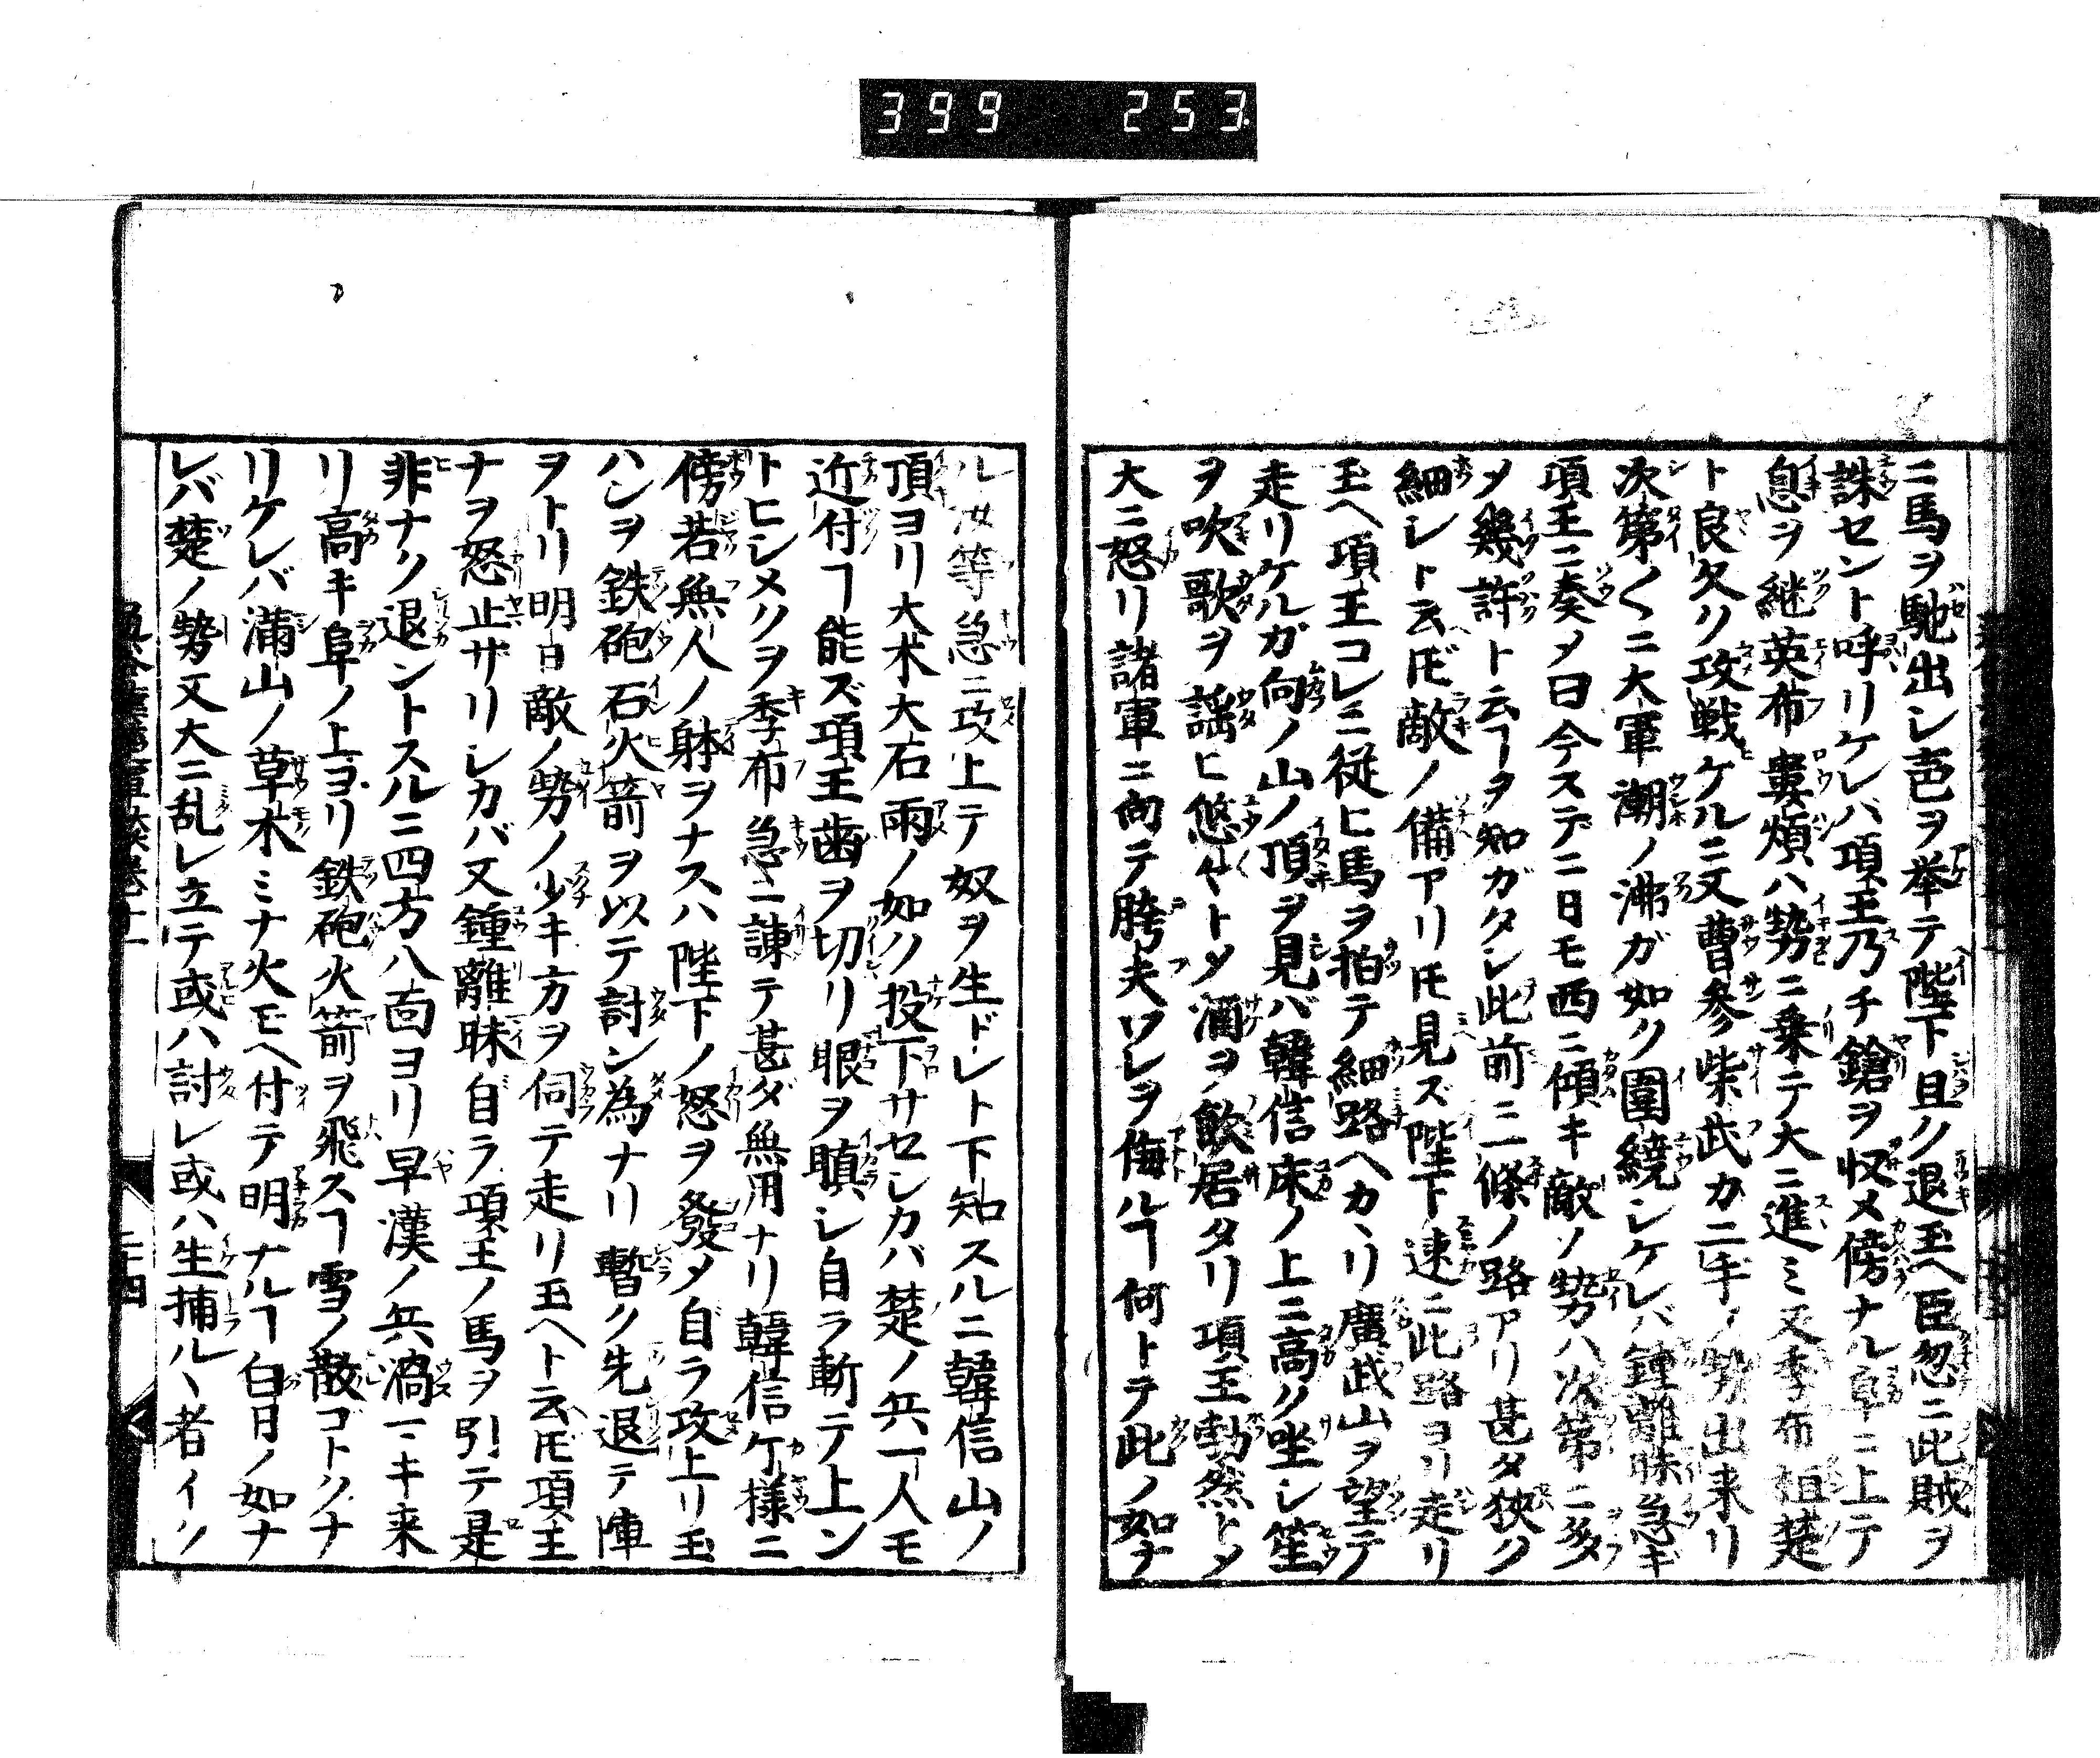 399 253
ニ馬ヲ馳出シ声ヲ挙テ陛下且ク退玉ヘ臣忽ニ此賊ヲ
誅セント呼リケレバ項王乃チ鎗ヲ収メ傍ナル阜ニ上テ
息ヲ継英布婁煩ハ勢ニ乗テ大ニ進ミ又季布桓楚
ト良久ク攻戦ケルニ又曹参柴武カ二手ノ勢出来リ
次第〱ニ大軍潮ノ沸ガ如ク圍繞シケレバ鍾離昧急ギ
項王ニ奏メ曰今ステニ日モ西ニ傾キ敵ノ勢ハ次第ニ多メ
メ幾許ト云ヿヲ知ガタシ此前ニ二條ノ路アリ甚タ狭ク
細シト云𪜈敵ノ備アリ𪜈見ズ陛下速ニ此路ヨリ走リ
玉ヘ項王コレニ従ヒ馬ヲ拍テ細路ヘカヽリ廣武山ヲ望テ
走リケルガ向ノ山ノ頂ヲ見バ韓信床ノ上ニ高ク坐シ笙
ヲ吹歌ヲ謡ヒ悠々トメ酒ヲ飲居タリ項王勃然トメ
大ニ怒リ諸軍ニ向テ胯夫ワレヲ侮ルヿ何トテ此ノ如ナ
ル汝等急ニ攻上テ奴ヲ生ドレト下知スルニ韓信山ノ
頂ヨリ大木大石雨ノ如ク投下サセシカバ楚ノ兵一人モ
近付ヿ能ズ項王歯ヲ切リ眼ヲ瞋シ自ラ斬テ上ン
トヒシメクヲ季布急ニ諫テ甚ダ無用ナリ韓信ケ様ニ
傍若無人ノ躰ヲナスハ陛下ノ怒ヲ發メ自ラ攻上リ玉
ハンヲ鉄砲石火箭ヲ以テ討ン為ナリ暫ク先退テ陣
ヲトリ明日敵ノ勢ノ少キ方ヲ伺テ走リ玉ヘト云𪜈項王
ナヲ怒止サリシカバ又鍾離昧自ラ項王ノ馬ヲ引テ是
非ナク退ントスルニ四方八面ヨリ早漢ノ兵渦マキ来
リ高キ阜ノ上ヨリ鉄砲火箭ヲ飛スヿ雪ノ散ゴトクナ
リケレバ満山ノ草木ミナ火モヘ付テ明ナルヿ白日ノ如ナ
レバ楚ノ勢又大ニ乱レ立テ或ハ討レ或ハ生捕ルヽ者イク
二十四